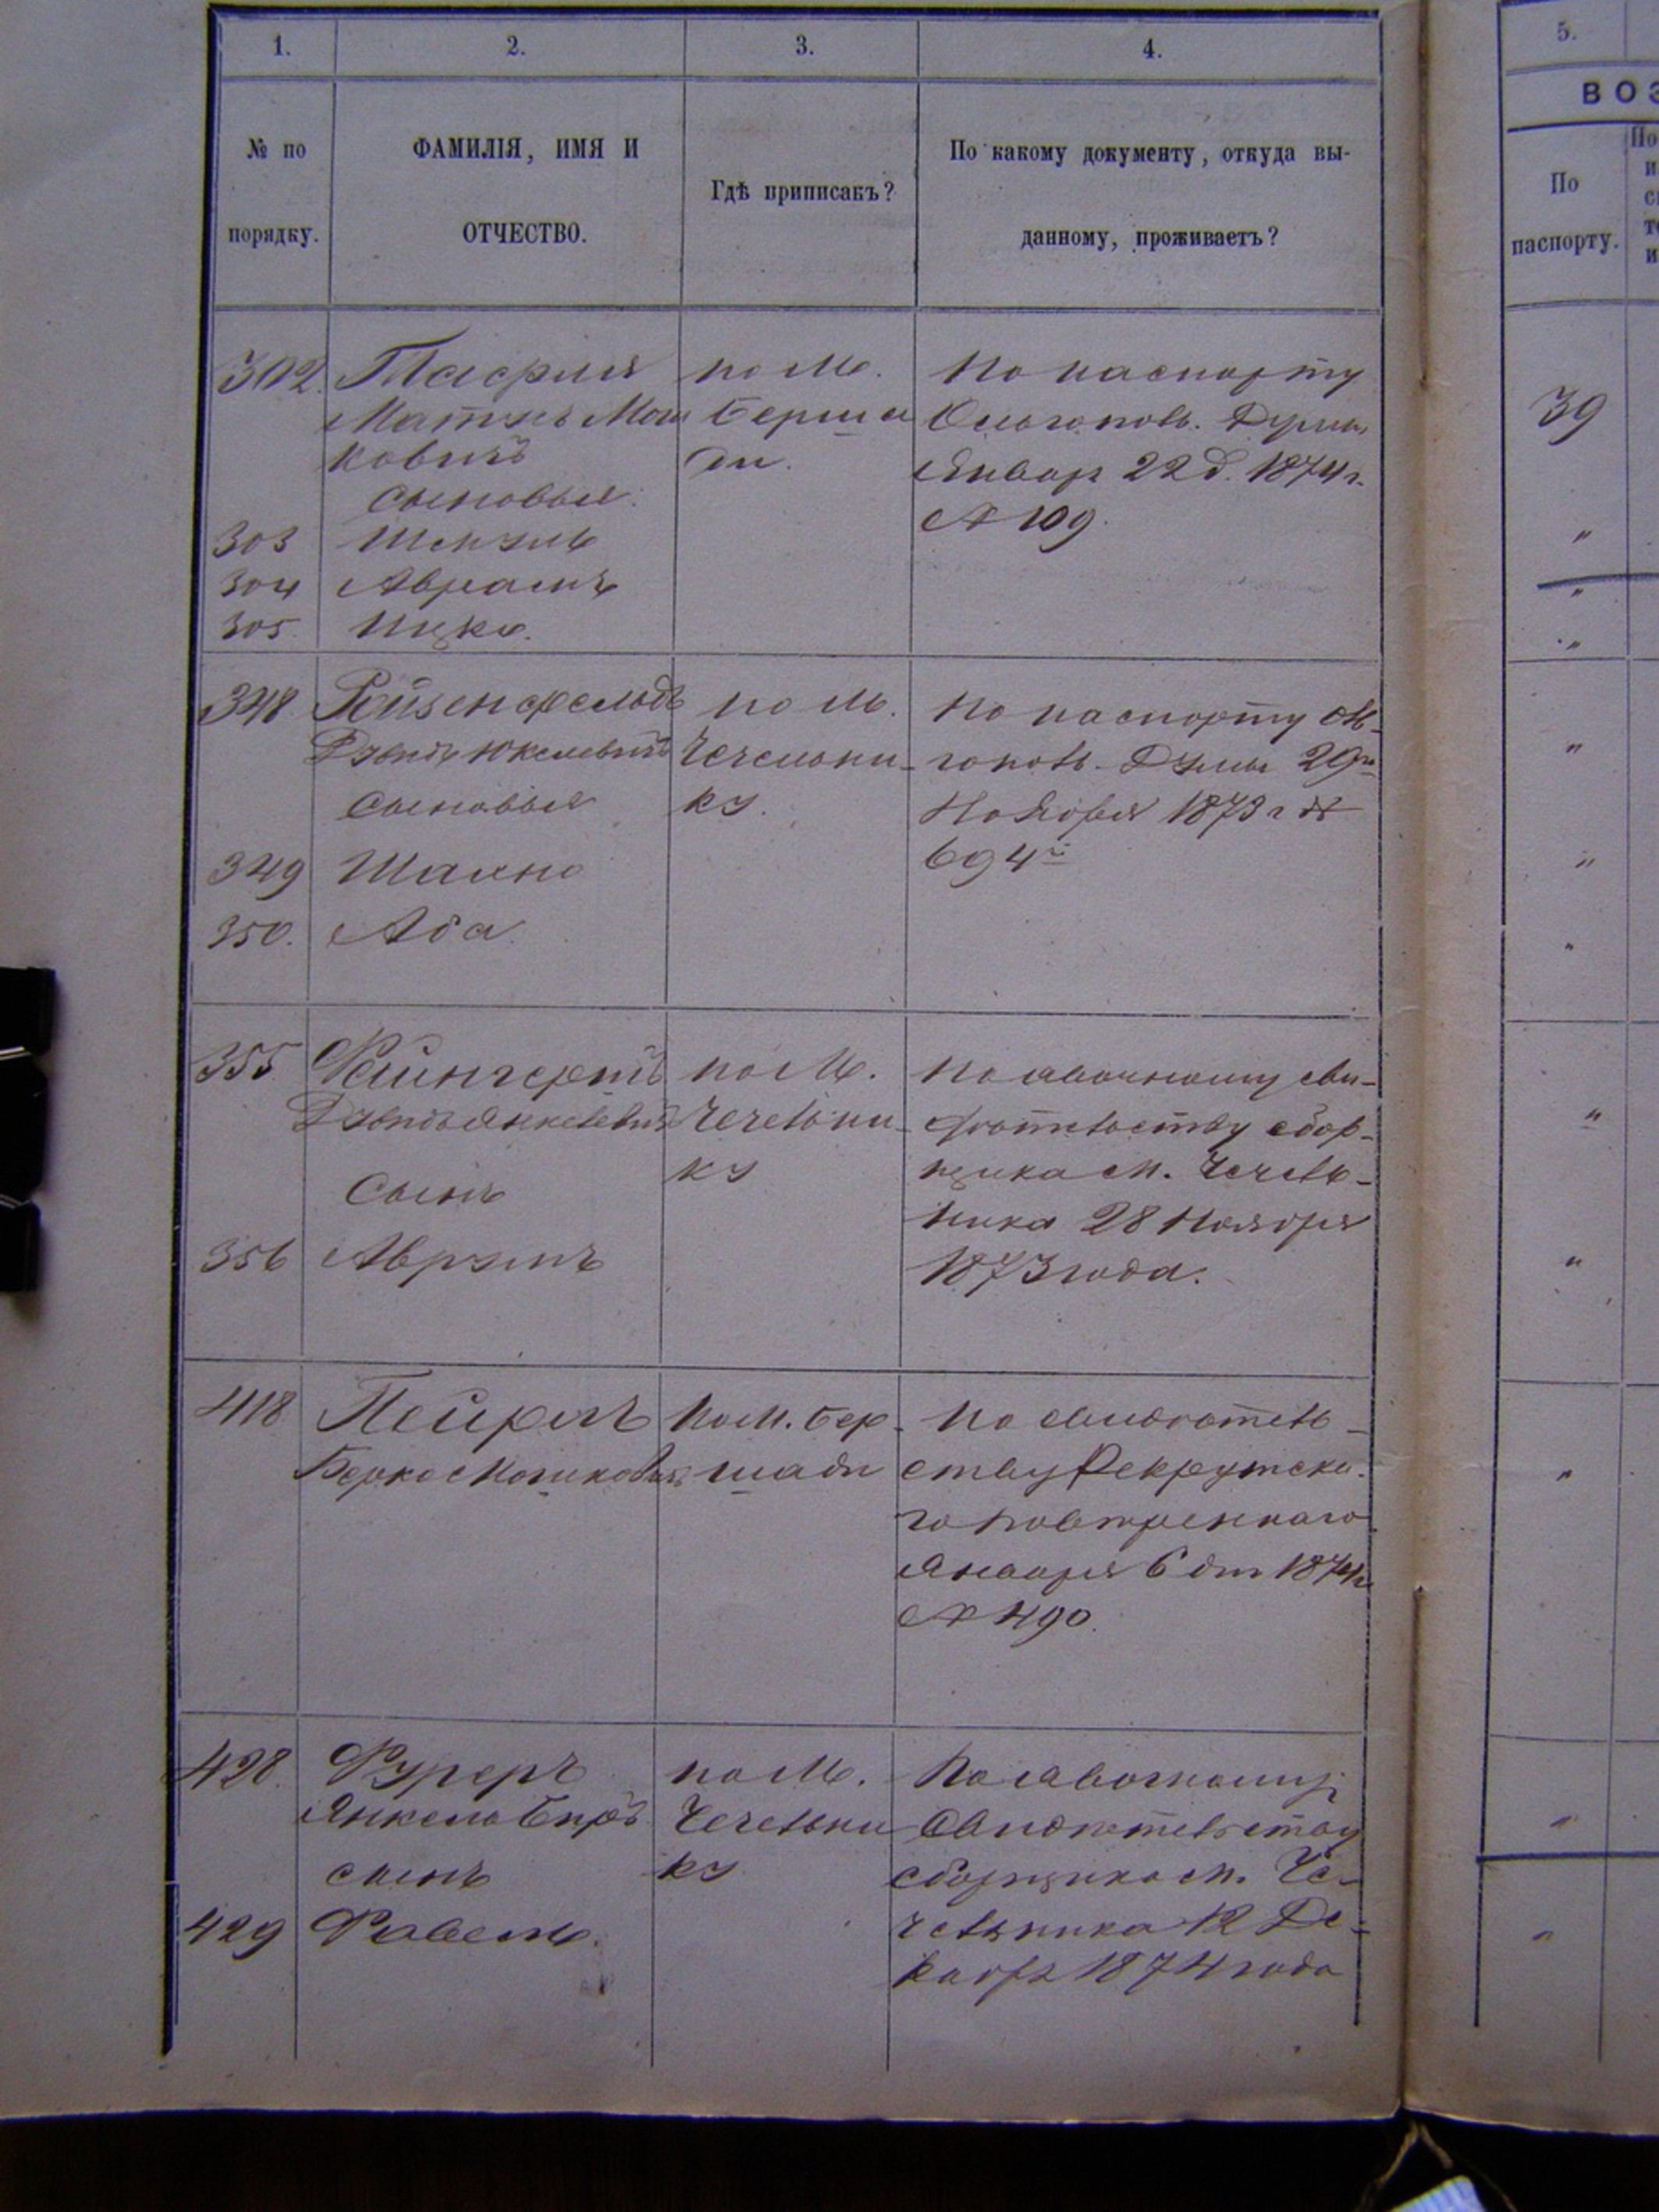 1.
2.
3.
4.
5.
№ по
порядку.
ФАМИЛІЯ, ИМЯ И
ОТЧЕСТВО.
Гдѣ приписакъ?
По какому документу, откуда вы-
данному, проживаетъ?
ВОЗ
По
паспорту.
302.
Мош
ковичъ
сыновья
303
304 Аврамъ
305. Ицко.
по М.
Берша
ди.
По паспорту
Ольгопол. Думы
Январ 22 д. 1874 г.
№ 109.
39
348 Рейзенфельдъ
Дувидъ Юкелевичъ
сыновья
349
350. Аба
по М.
Чечельни-
ку.
По паспорту Оль-
гопол. Думы 29го
Ноября 1873 г №
694
355 Фаингертъ
Дувидъ Янкелевичъ
Сынъ
356 Аврумъ
по М.
Чечельни-
ку
По явочному сви-
дѣтельству сбор-
щика м. Чечель-
ника 28 Ноября
1873 года.
418
Берко Мошковичъ
по М. Бер-
шади
По свидѣтель-
ству Рекрутска-
го
Января 6 дня 1874 г
№ 490.
428. Фуреръ
Янкель Бер
сынъ
429
по М.
Чечельни
ку
По явочному
Свидѣтельству
сборщика м. Че-
чельника 12 Де-
кабр 1874 года